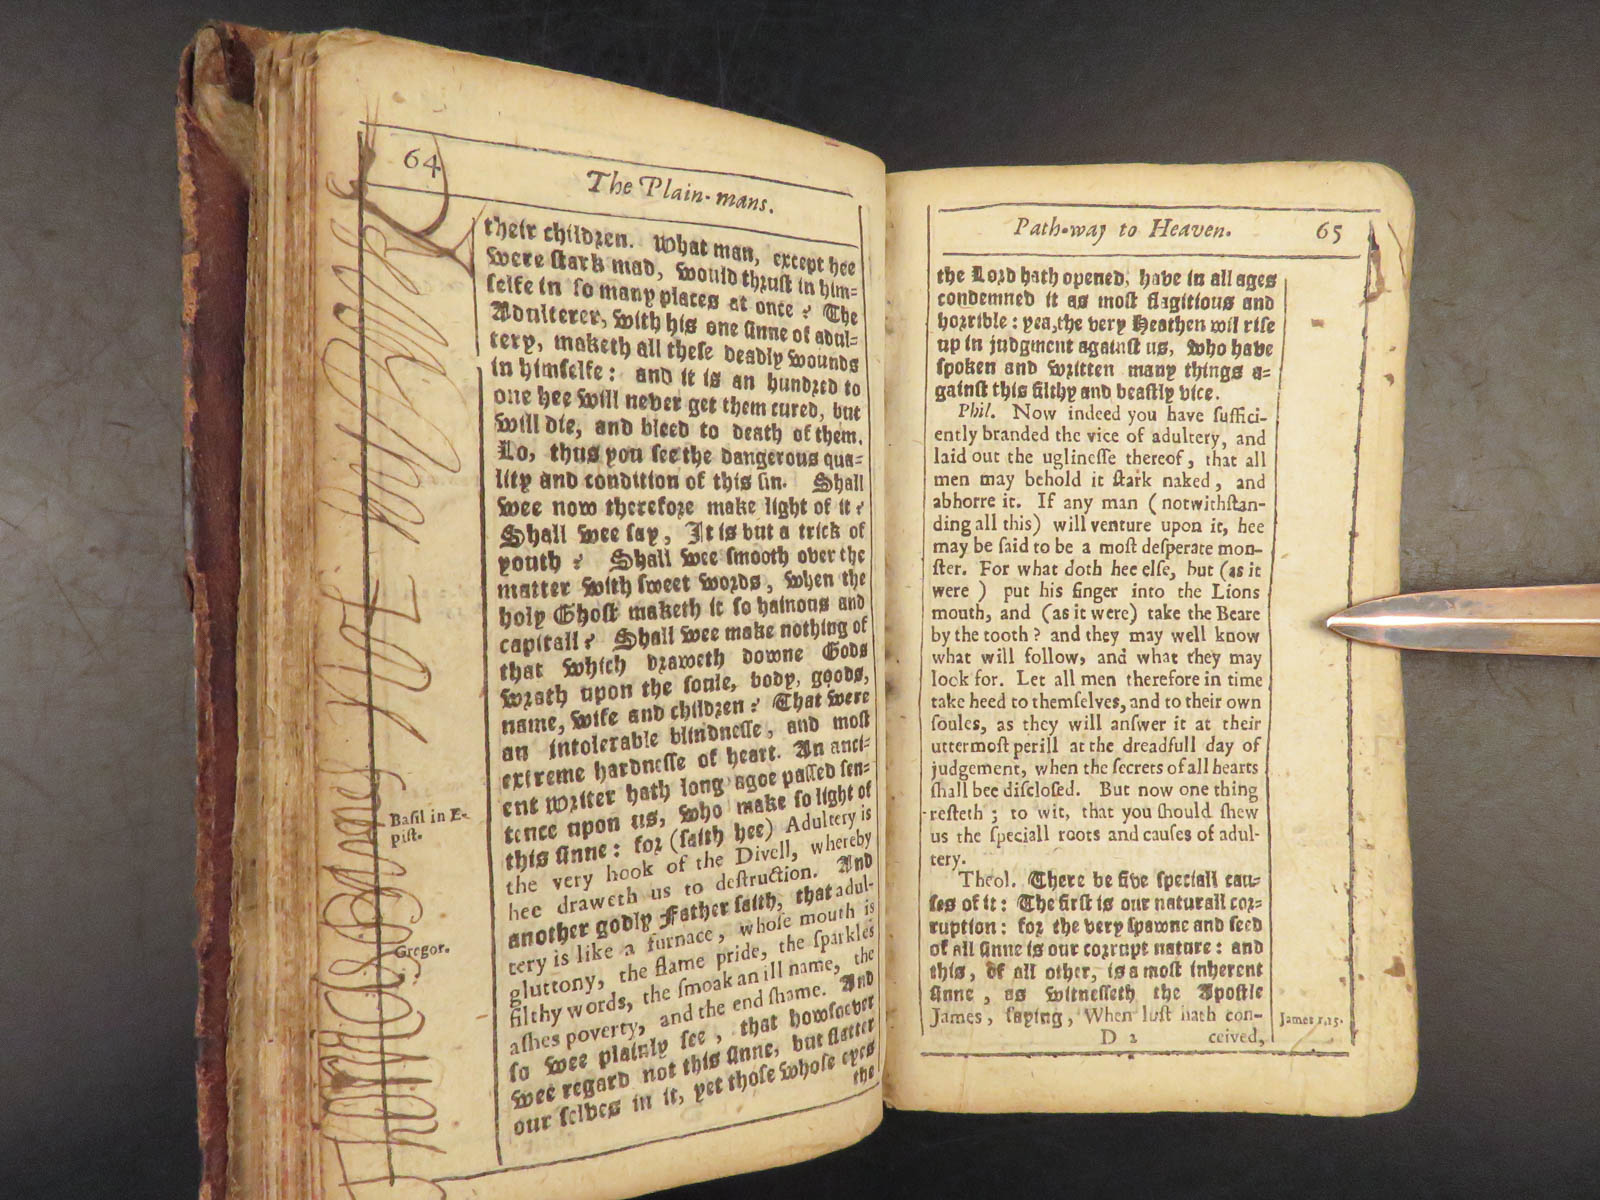 64
The Plain-mans.
their children. What man, except hee
were stark mad, would thrust in him-
selfe in so many places at once? The
Adulterer, with his one sinne of adul-
tery, maketh all these deadly wounds
in himselfe: and it is an hundred to
one hee will never get them cured, but
will die, and bleed to death of them.
Lo, thus you see the dangerous qua-
lity and condition of this sin. Shall
wee now therefore make light of it?
Shall wee say, It is but a trick of
youth? Shall wee smooth over the
matter with sweet words, when the
holy Ghost maketh it so hainous and
capitall? Shall wee make nothing of
that which draweth downe Gods
wrath upon the soule, body, goods,
name, wife and children? That were
an intolerable blindnesse, and most
extreme hardnesse of heart. An anci-
ent writer hath long agoe passed sen-
tence upon us, who make so light of
this sinne: for (saith hee) Adultery is
the very hook of the Divell, whereby
hee draweth us to destruction. And
another godly Father saith, that adul-
tery is like a furnace, whose mouth is
gluttony, the flame pride, the sparkles
filthy words, the smoak an ill name, the
ashes poverty, and the end shame. And
so wee plainly see, that howsoever
wee regard not this sinne, but flatter
our selves in it, yet those whose eyes
the
Basil in E-
pist.
Gregor.
Path-way to Heaven. 65
the Lord hath opened, have in all ages
condemned it as most flagitious and
horrible: yea, the very Heathen wil rise
up in judgment against us, who have
spoken and written many things a-
gainst this filthy and beastly vice.
Phil. Now indeed you have suffici-
ently branded the vice of adultery, and
laid out the uglinesse thereof, that all
men may behold it stark naked, and
abhorre it. If any man (notwithstan-
ding all this) will venture upon it, hee
may be said to be a most desperate mon-
ster. For what doth hee else, but (as it
were) put his finger into the Lions
mouth, and (as it were) take the Beare
by the tooth? and they may well know
what will follow, and what they may
look for. Let all men therefore in time
take heed to themselves, and to their own
soules, as they will answer it at their
uttermost perill at the dreadfull day of
judgement, when the secrets of all hearts
shall bee disclosed. But now one thing
resteth; to wit, that you should shew
us the speciall roots and causes of adul-
tery.
Theol. There be five speciall cau-
ses of it: The first is our naturall cor-
ruption: for the very spawne and seed
of all sinne is our corrupt nature: and
this, of all other, is a most inherent
sinne, as witnesseth the Apostle
James, saying, When lust hath con-
D 2 ceived,
James 1.15.